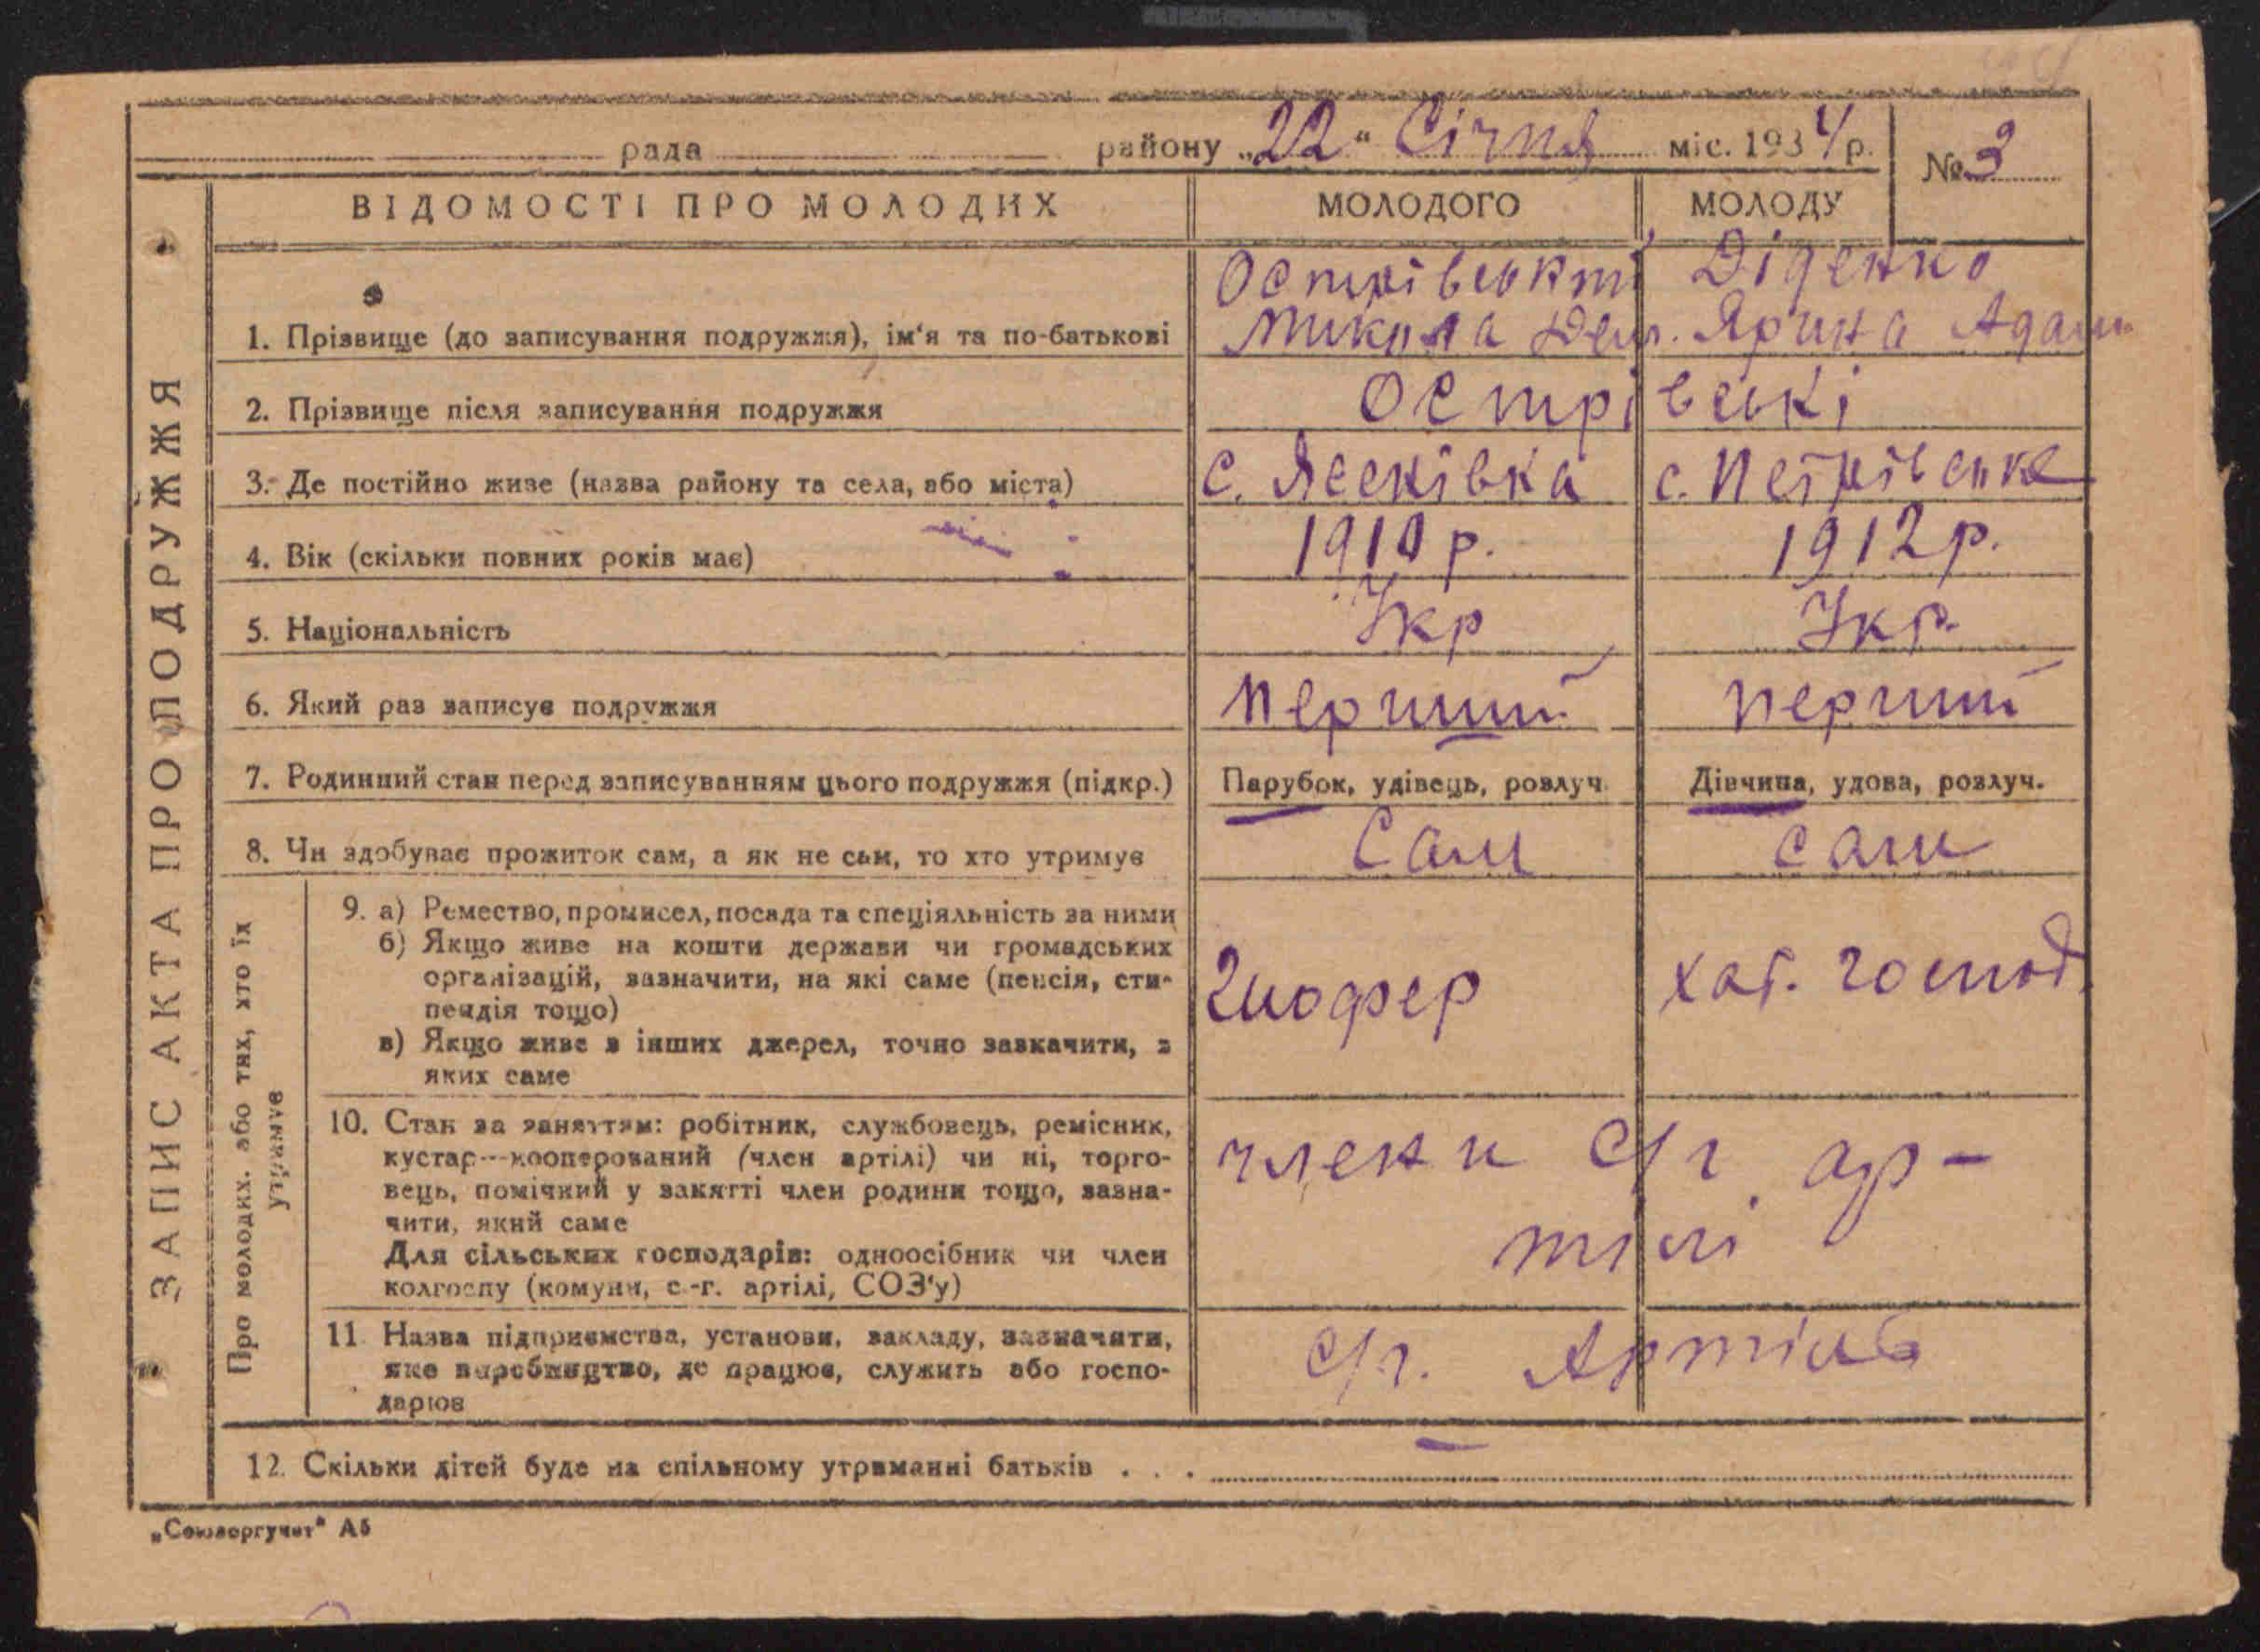 рада району „22“ Січня міс. 1934 р. № 3
ВІДОМОСТІ ПРО МОЛОДИХ МОЛОДОГО МОЛОДУ
Острівський Діденко
1. Прізвище (до записування подружжя), ім'я та по-батькові Микола Дем. Ярина Адам.
2. Прізвище після записування подружжя Острівські
3. Де постійно живе (назва району та села, або міста) с. Ясенівка с. Петрівське
4. Вік (скільки повних років має) 1910 р. 1912 р.
5. Національність Укр Укр.
6. Який раз записує подружжя перший перший
7. Родинний стан перед записуванням цього подружжя (підкр.) Парубок, удівець, розлуч. Дівчина, удова, розлуч.
8. Чи здобуває прожиток сам, а як не сам, то хто утримує Сам сам
9. а) Ремество, промисел, посада та спеціяльність за ними
б) Якщо живе на кошти держави чи громадських
організацій, зазначити, на які саме (пенсія, сти-
пендія тощо) шофер хат. господ.
в) Якщо живе з інших джерел, точно зазначити, з
яких саме
10. Стан за заняттям: робітник, службовець, ремісник,
кустар—кооперований (член артілі) чи ні, торго-
вець, помічний у занятті член родини тощо, зазна-
чити, який саме
Для сільських господарів: одноосібник чи член
колгоспу (комуни, с.-г. артілі, СОЗ'у)
члени с/г. ар-
тілі
11. Назва підприємства, установи, закладу, зазначити,
яке виробництво, де працює, служить або госпо-
дарює
с/г. Артіль
12. Скільки дітей буде на спільному утриманні батьків . . . —
ЗАПИС АКТА ПРО ПОДРУЖЖЯ
Про молодих, або тих, хто їх
утримує
„Союзоргучет“ А5